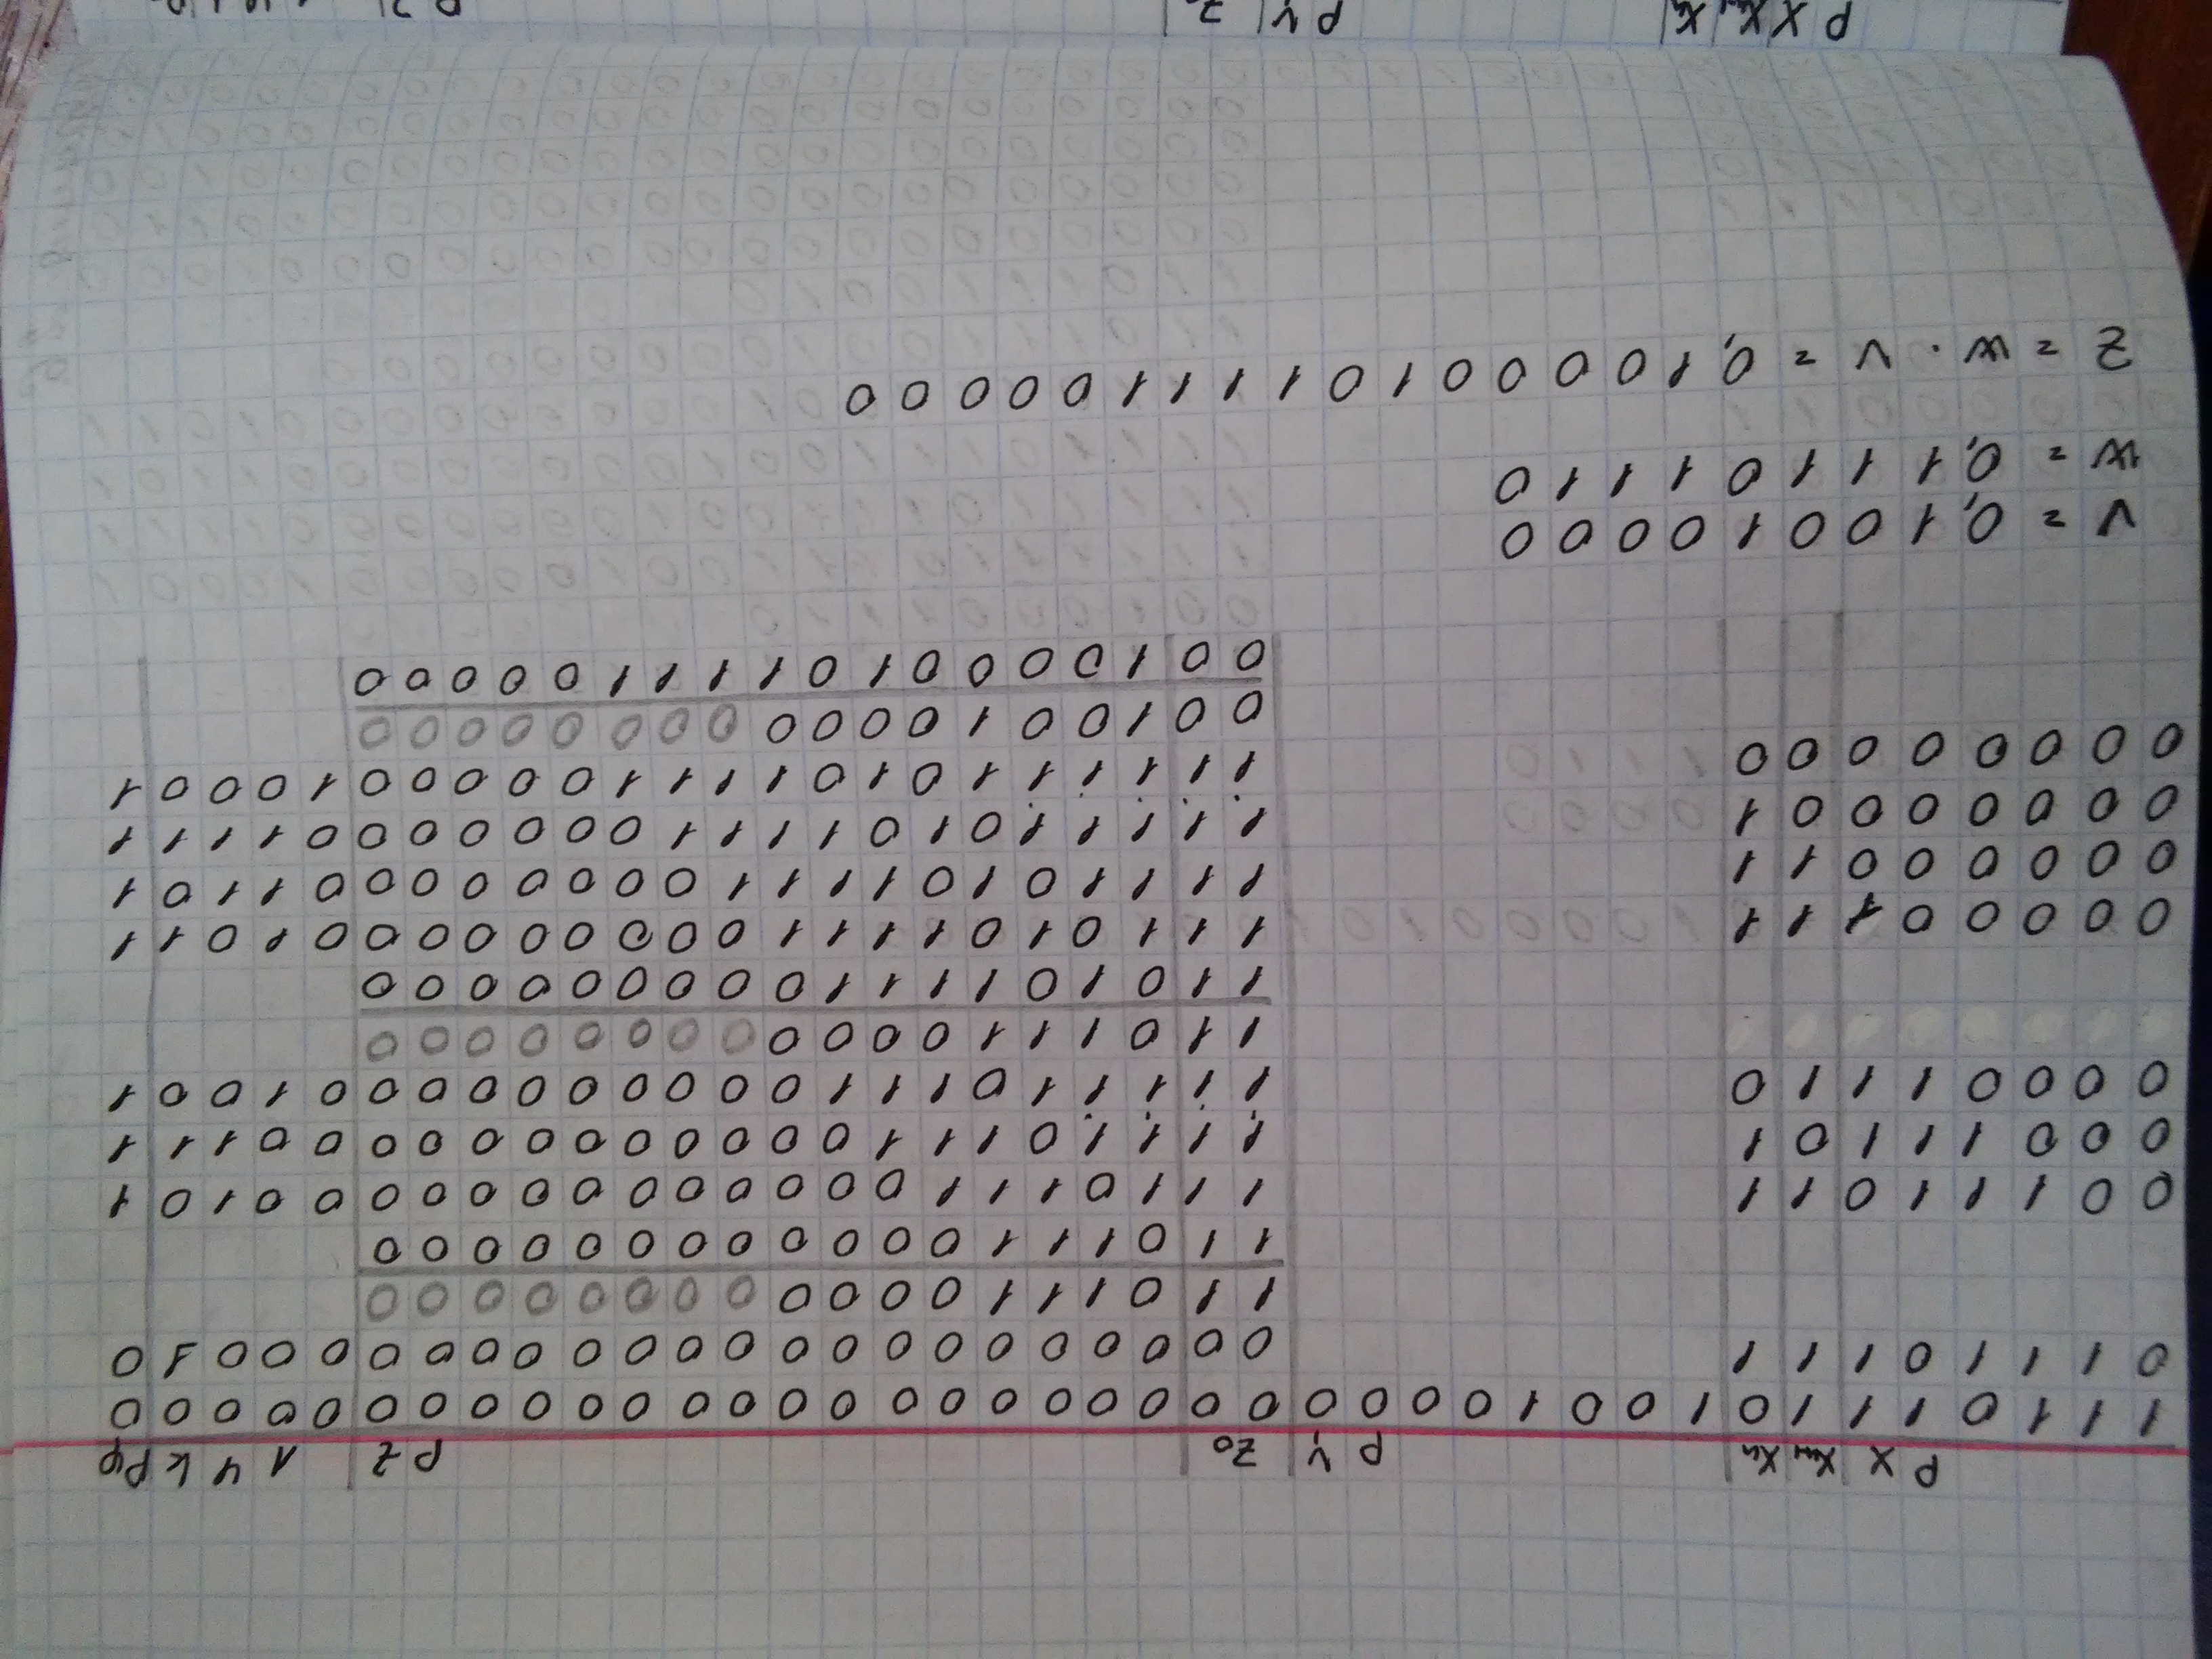 РХ Xn-1 Xn РY Z0 РZ 1 Ч k Рφ
1 1 1 0 1 1 1 0 1 0 0 1 0 0 0 0 0 0 0 0 0 0 0 0 0 0 0 0 0 0 0 0 0 0 0 0 0 0 0
0 1 1 1 0 1 1 1 0 0 0 0 0 0 0 0 0 0 0 0 0 0 0 0 0 0 0 0 0 1 0
1 1 0 1 1 1 0 0 0 0 0 0 0 0 0 0 0 0
1 1 0 1 1 1 0 0 0 0 0 0 0 0 0 0 0 0
0 0 1 1 1 0 1 1 1 1 1 0 1 1 1 0 0 0 0 0 0 0 0 0 0 0 0 0 1 0 1
0 0 0 1 1 1 0 1 1 1 1 1 0 1 1 1 0 0 0 0 0 0 0 0 0 0 0 0 1 1 1
0 0 0 0 1 1 1 0 1 1 1 1 1 0 1 1 1 0 0 0 0 0 0 0 0 0 0 1 0 0 1
1 1 0 1 1 1 0 0 0 0 0 0 0 0 0 0 0 0
1 1 0 1 0 1 1 1 1 0 0 0 0 0 0 0 0 0
0 0 0 0 0 1 1 1 1 1 1 0 1 0 1 1 1 1 0 0 0 0 0 0 0 0 0 1 0 1 1
0 0 0 0 0 0 1 1 1 1 1 1 0 1 0 1 1 1 1 0 0 0 0 0 0 0 0 1 1 0 1
0 0 0 0 0 0 0 1 1 1 1 1 1 0 1 0 1 1 1 1 0 0 0 0 0 0 0 1 1 1 1
0 0 0 0 0 0 0 0 1 1 1 1 1 1 0 1 0 1 1 1 1 0 0 0 0 0 1 0 0 0 1
0 0 1 0 0 1 0 0 0 0 0 0 0 0 0 0 0 0
0 0 1 0 0 0 0 1 0 1 1 1 1 0 0 0 0 0
V = 0,1 0 0 1 0 0 0 0
W = 0,1 1 1 0 1 1 1 0
Z = W · V = 0,1 0 0 0 0 1 0 1 1 1 1 0 0 0 0 0
РХ Xn-1 Xn РY Z0 РZ